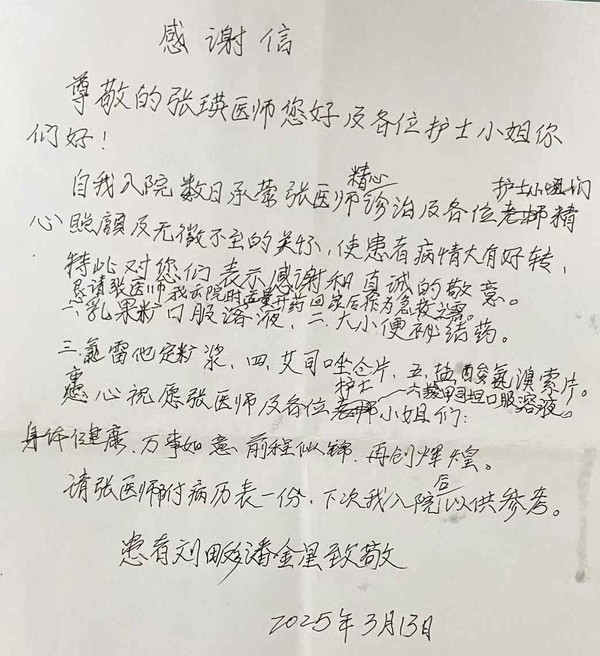 感谢信
尊敬的张瑛医师您好及各位护士小姐你
们好！
自我入院数日承蒙张医师精心诊治及各位护士小姐们精
心照顧及无微不至的关怀，使患者病情大有好转，
特此对您们表示感谢和真诚的敬意。
恳请张医师我出院时适量开药回家后作为急救之需。
一、乳果粉口服溶液，二、大小便秘结药。
三、氯雷他定糖浆，四、艾司唑仑片，五、盐酸氨溴索片。
六、口服溶液。
衷心祝愿张医师及各位护士小姐们：
身体健康，万事如意，前程似锦，再创辉煌。
请张医师附病历表一份，下次我入院含以供参考。
患者刘潘金星致敬
2025年3月13日